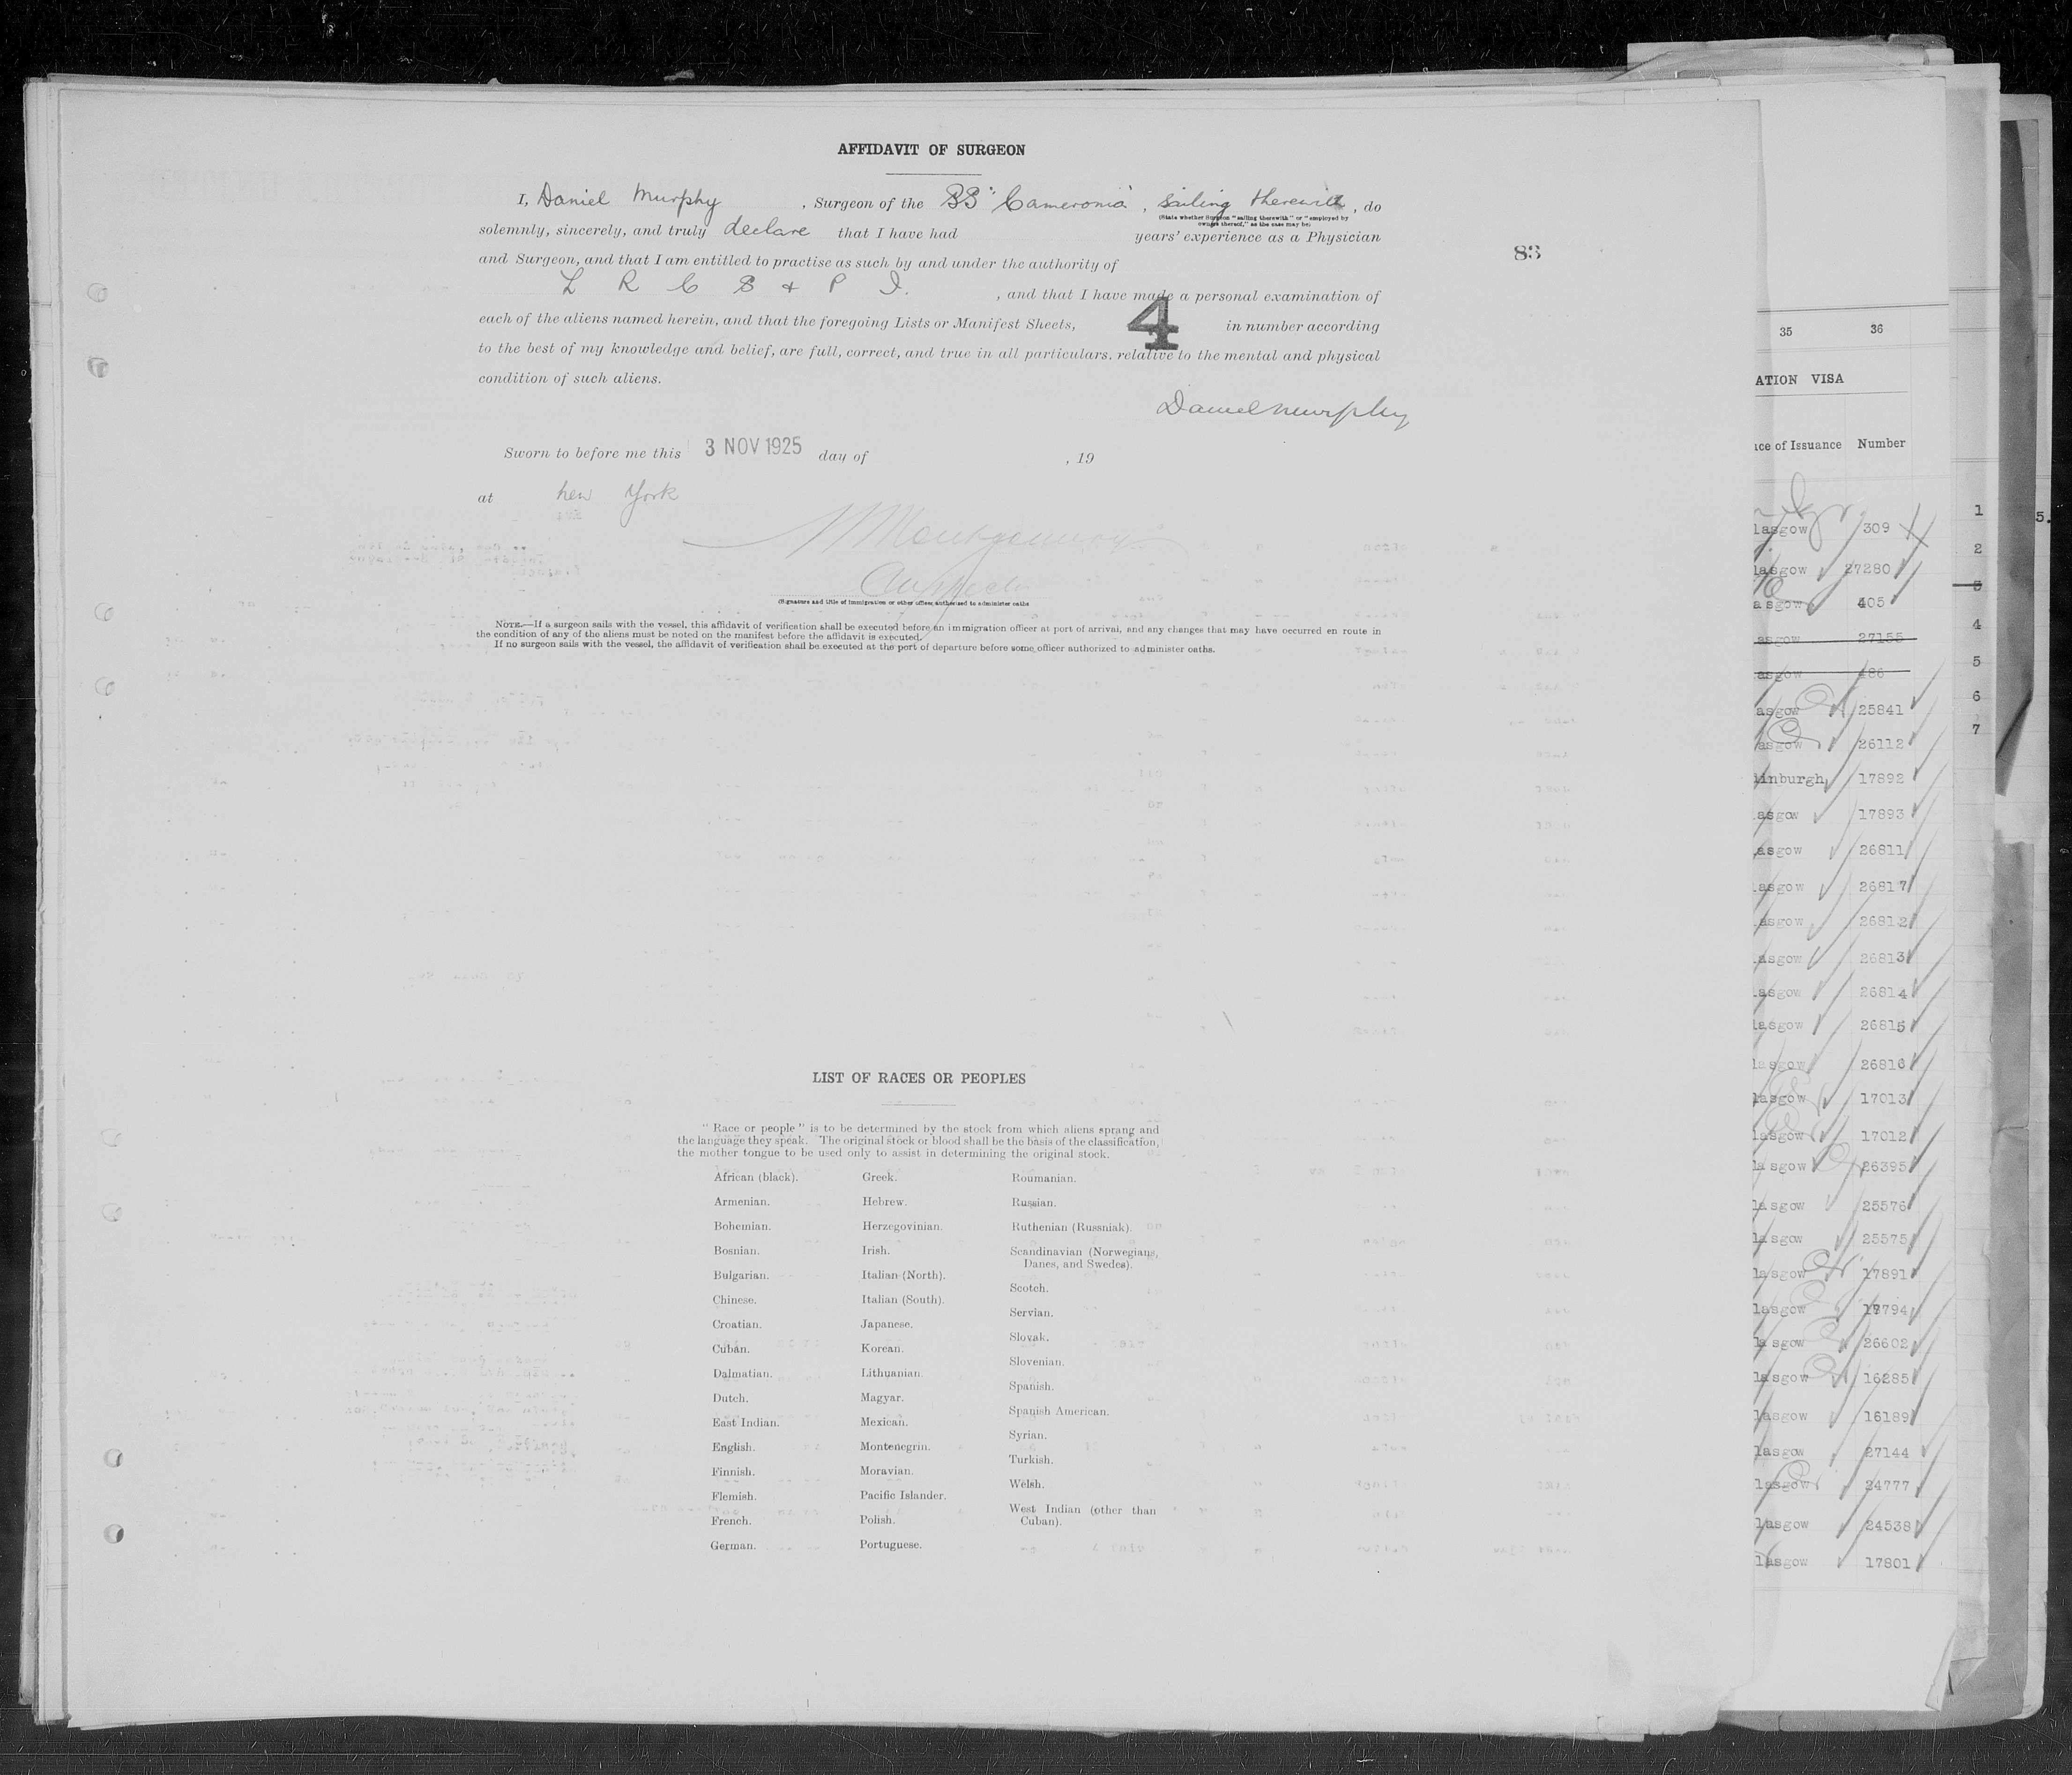 AFFIDAVIT OF SURGEON
I, Daniel Murphy, Surgeon of the SS "Cameronia", sailing therewith, do
(State whether Surgeon "sailing therewith" or "employed by
owners thereof," as the case may be)
solemnly, sincerely, and truly declare that I have had years' experience as a Physician
83
and Surgeon, and that I am entitled to practise as such by and under the authority of
L R C S & P I. , and that I have made a personal examination of
each of the aliens named herein, and that the foregoing Lists or Manifest Sheets, 4 in number according
to the best of my knowledge and belief, are full, correct, and true in all particulars, relative to the mental and physical
condition of such aliens.
Daniel Murphy
Sworn to before me this 3 NOV 1925 day of , 19
at New York
Montgomery
(Signature and title of immigration or other officer authorised to administer oaths
NOTE.—If a surgeon sails with the vessel, this affidavit of verification shall be executed before an immigration officer at port of arrival, and any changes that may have occurred en route in
the condition of any of the aliens must be noted on the manifest before the affidavit is executed.
If no surgeon sails with the vessel, the affidavit of verification shall be executed at the port of departure before some officer authorized to administer oaths.
LIST OF RACES OR PEOPLES
"Race or people" is to be determined by the stock from which aliens sprang and
the language they speak. The original stock or blood shall be the basis of the classification,
the mother tongue to be used only to assist in determining the original stock.
African (black).
Armenian.
Bohemian.
Bosnian.
Bulgarian.
Chinese.
Croatian.
Cuban.
Dalmatian.
Dutch.
East Indian.
English.
Finnish.
Flemish.
French.
German.
Greek.
Hebrew.
Herzegovinian.
Irish.
Italian (North).
Italian (South).
Japanese.
Korean.
Lithuanian.
Magyar.
Mexican.
Montenegrin.
Moravian.
Pacific Islander.
Polish.
Portuguese.
Roumanian.
Russian.
Ruthenian (Russniak).
Scandinavian (Norwegians,
Danes, and Swedes).
Scotch.
Servian.
Slovak.
Slovenian.
Spanish.
Spanish American.
Syrian.
Turkish.
Welsh.
West Indian (other than
Cuban).
35 36
ATION VISA
ce of Issuance Number
lasgow 309
lasgow 27280
asgow 405
asgow 27155
asgow 486
asgow 25841
asgow 26112
inburgh 17892
asgow 17893
asgow 26811
lasgow 26817
lasgow 26812
lasgow 26813
lasgow 26814
lasgow 26815
lasgow 26816
lasgow 17013
lasgow 17012
lasgow 26395
lasgow 25576
lasgow 25575
lasgow 17891
lasgow 17794
lasgow 26602
lasgow 16285
lasgow 16189
lasgow 27144
lasgow 24777
lasgow 24538
lasgow 17801
1
2
3
4
5
6
7
5.